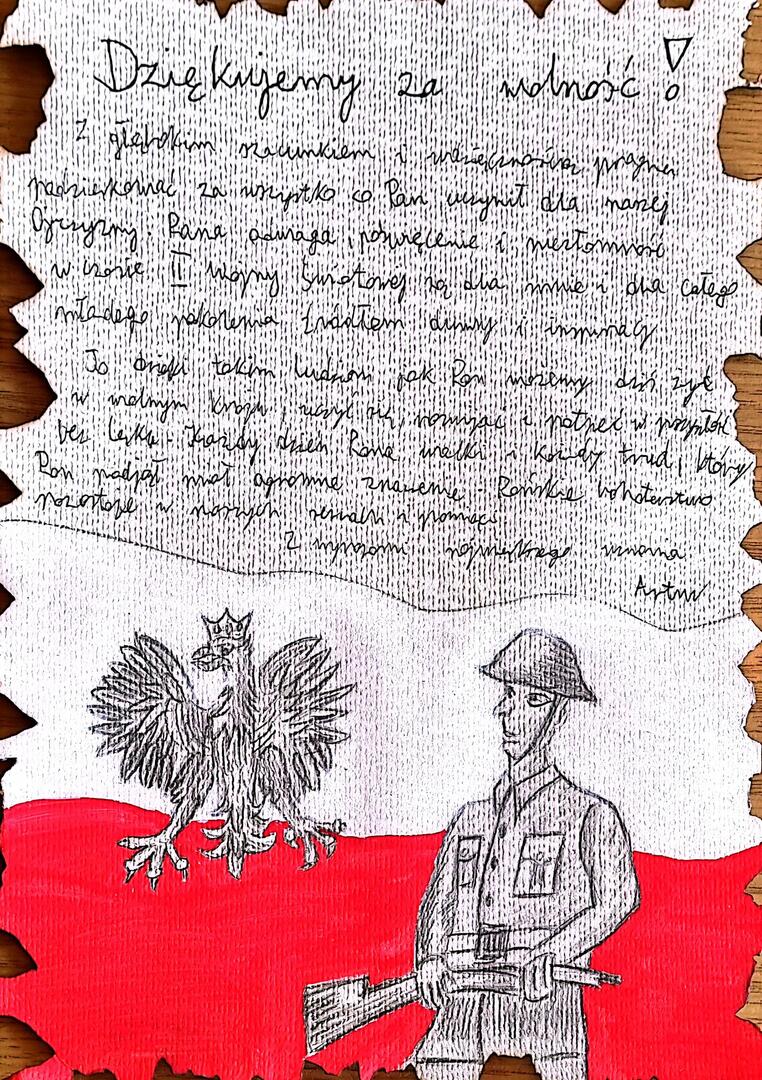 Dziękujemy za wolność!
Z głębokim szacunkiem i wdzięcznością pragnę
podziękować za wszystko co Pan uczynił dla naszej
Ojczyzny. Pana odwaga, poświęcenie i niezłomność
w czasie II wojny światowej są dla mnie i dla całego
młodego pokolenia źródłem dumy i inspiracji
To dzięki takim ludziom jak Pan możemy dziś żyć
w wolnym kraju, uczyć się, rozwijać i patrzeć w przyszłość
bez lęku. Każdy dzień Pana walki i każdy trud, który
Pan podjął miał ogromne znaczenie. Pańskie bohaterstwo
pozostaje w naszych sercach i pamięci
Z wyrazami największego uznania
Artur